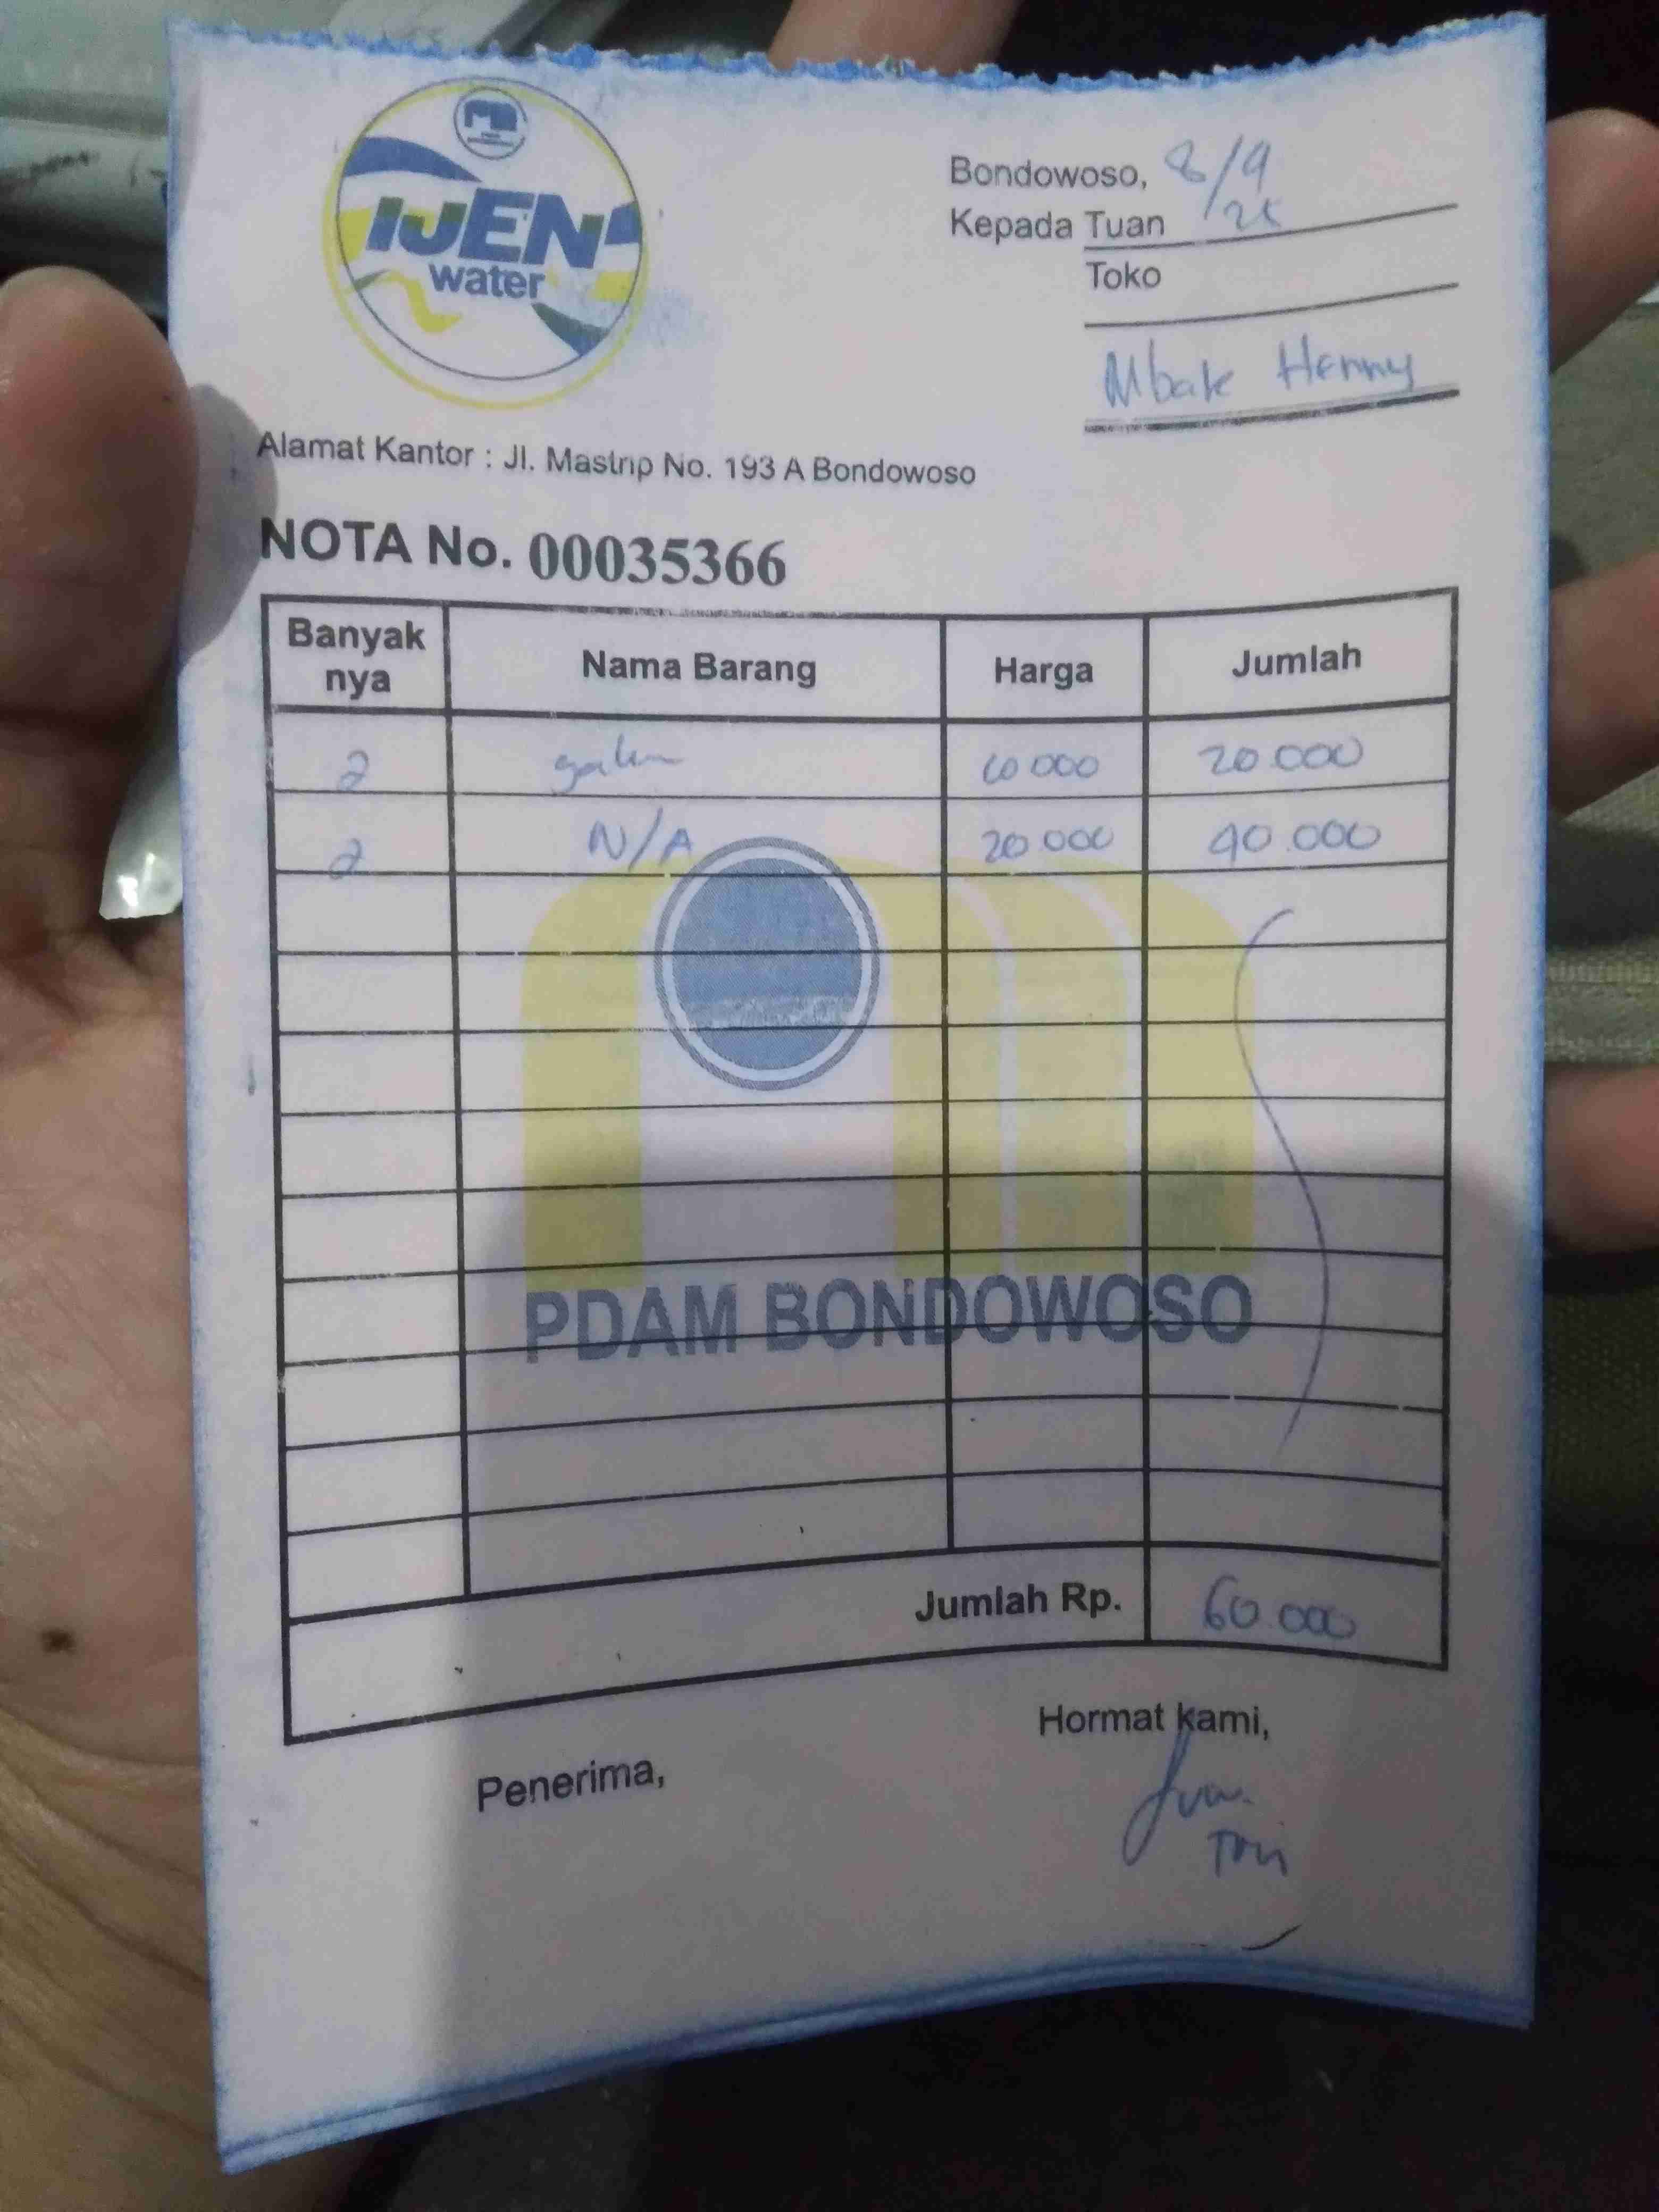 IJEN
water
Bondowoso, 8/9
/25
Kepada Tuan
Toko
Mbak Henny
Alamat Kantor : Jl. Mastrip No. 193 A Bondowoso
NOTA No. 00035366
Banyak nya Nama Barang Harga Jumlah
2 galon 10 000 20.000
2 N/A 20.000 40.000
PDAM BONDOWOSO
Jumlah Rp. 60.000
Hormat kami,
Penerima,